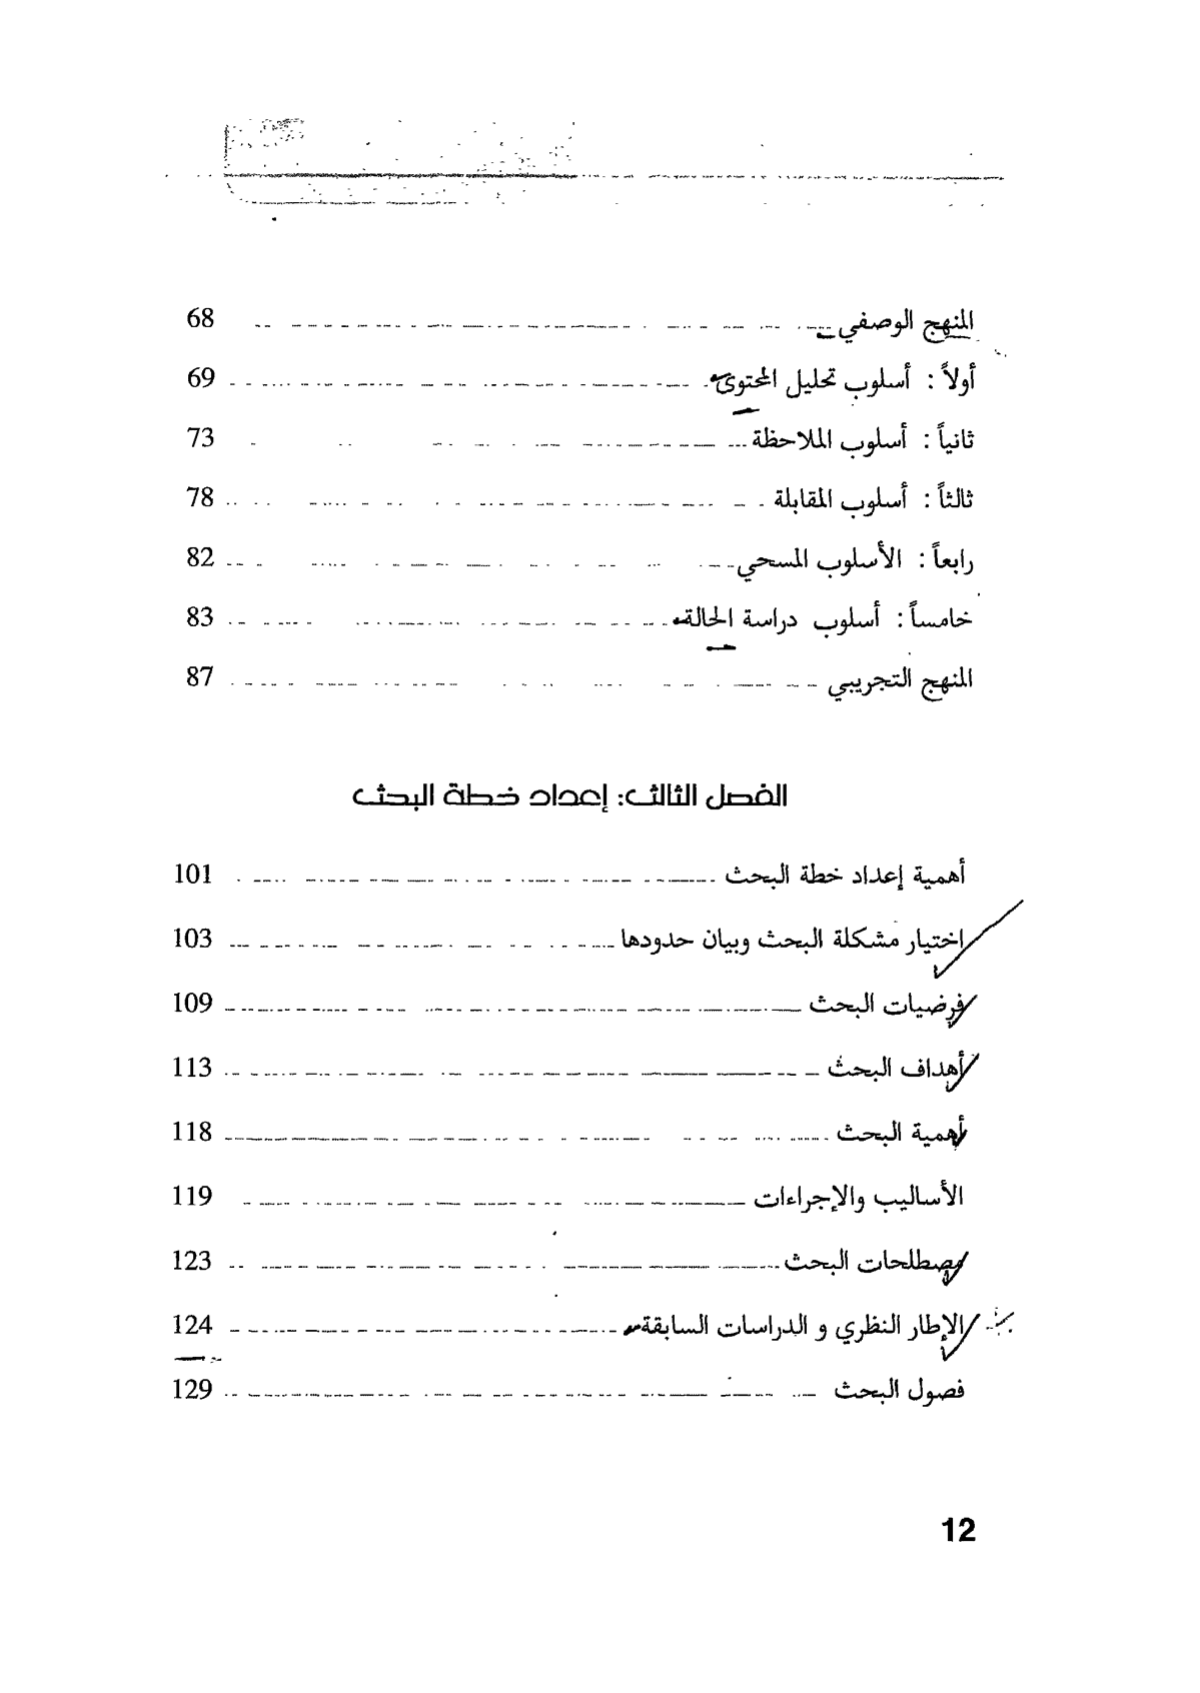 المنهج الوصفي 68
أولاً : أسلوب تحليل المحتوى 69
ثانياً : أسلوب الملاحظة 73
ثالثاً : أسلوب المقابلة 78
رابعاً : الأسلوب المسحي 82
خامساً : أسلوب دراسة الحالة 83
المنهج التجريبي 87
الفصل الثالث: إعداد خطة البحث
أهمية إعداد خطة البحث 101
اختيار مشكلة البحث وبيان حدودها 103
فرضيات البحث 109
أهداف البحث 113
أهمية البحث 118
الأساليب والإجراءات 119
مصطلحات البحث 123
الإطار النظري و الدراسات السابقة 124
فصول البحث 129
12